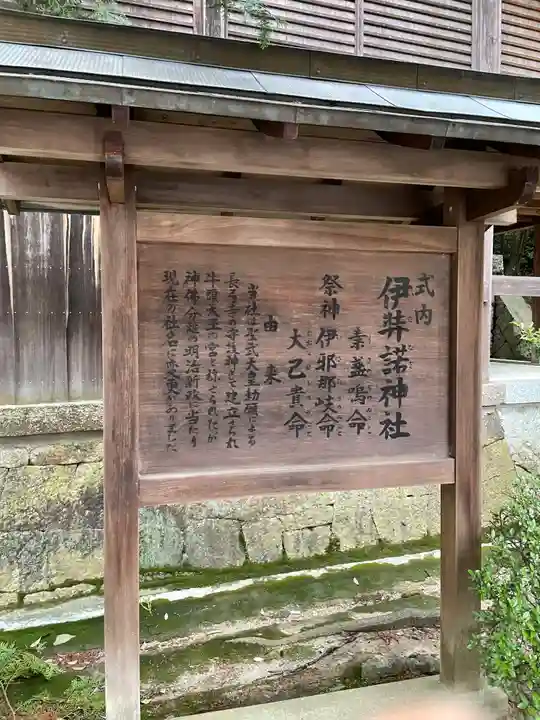 式内
伊弉諾神社
素盞嗚命
祭神 伊邪那岐命
大己貴命
由来
当社は聖武天皇勅願による
長弓寺の守護神として建立され
牛頭天王の宮と称せられたが
神佛分離の明治新政に当たり
現在の社名に変更がありました